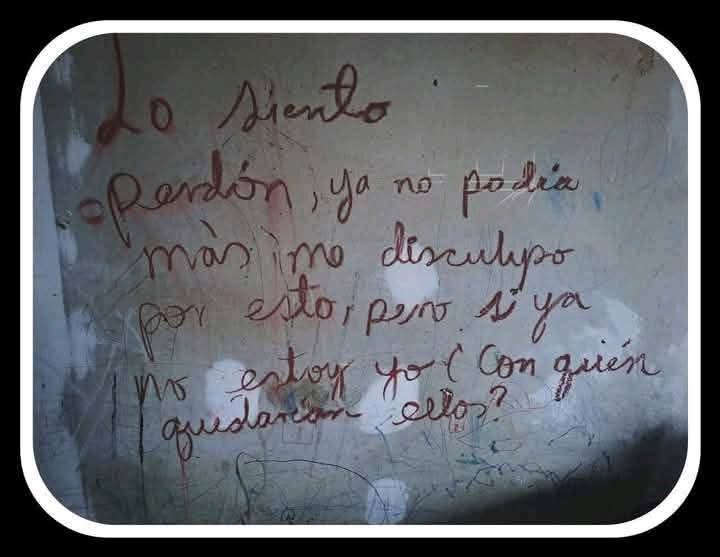 Lo siento
Perdón, ya no podía
más, me disculpo
por esto, pero si ya
no estoy yo (Con quién
quedarían ellos?